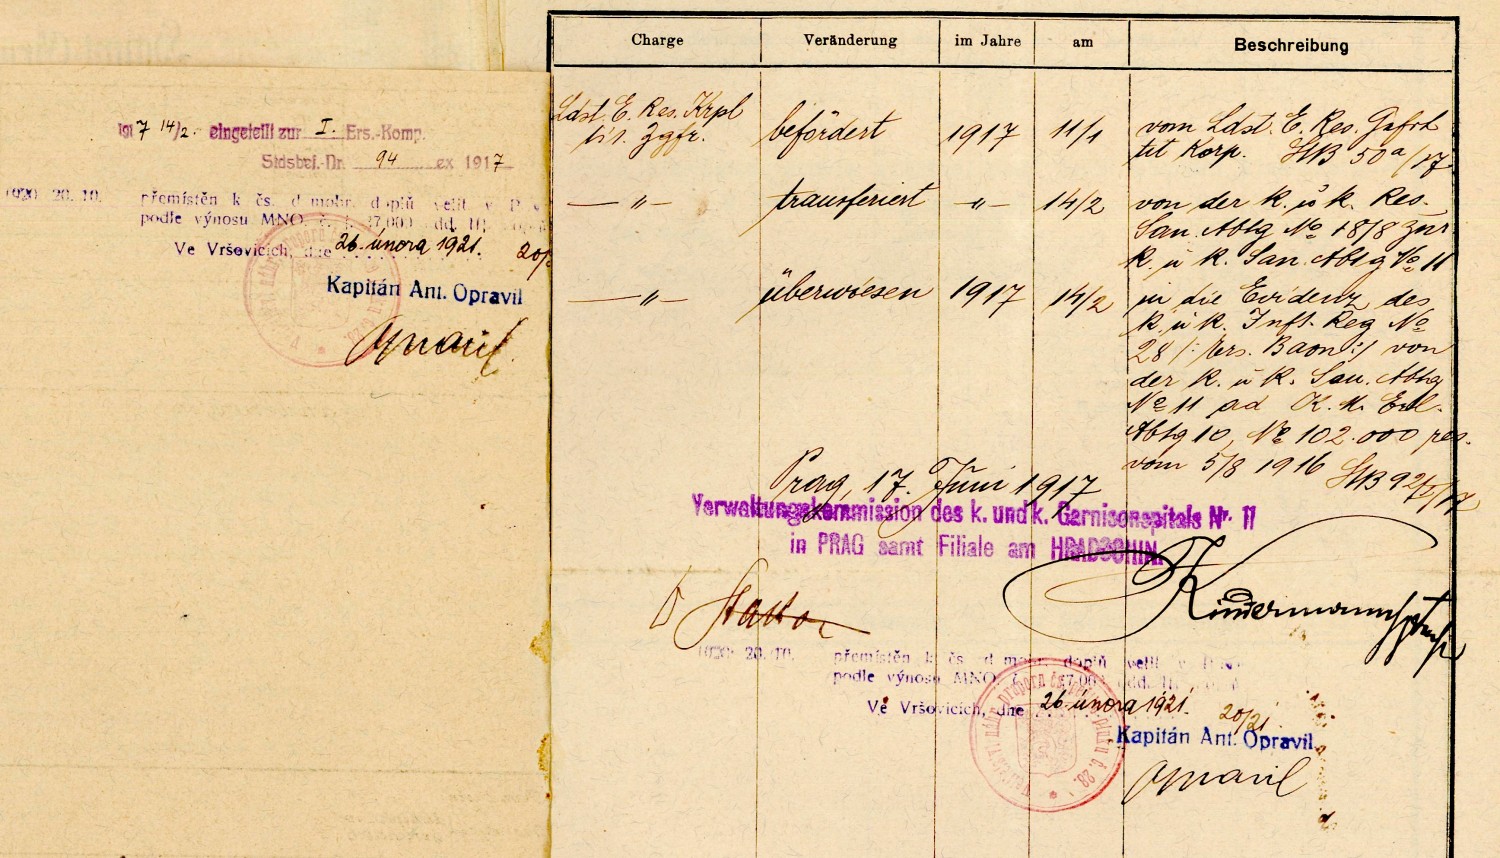 1917 14/2. eingeteilt zur I. Ers.-Komp.
Stdsbef.-Nr. 94 ex 1917
1920 20. 10. přemístěn k čs. d mobr. doplň velit v
podle výnosu MNO. č. 27.000 dd. III.
Ve Vršovicích, dne 26. února 1921. 20/2
Kapitán Ant. Opravil
Opravil
Charge Veränderung im Jahre am Beschreibung
Ldst. E. Res. Krpl befördert 1917 11/1 vom Ldst. E. Res. Gefrt
tit. Zgfr. tit Korp. StB 50a/17
— „ — transferiert — „ — 14/2 von der k. u. k. Res.
San. Abtg No 18/8 zur
k. u k. San. Abtg No 11
— „ — überwiesen 1917 14/2 in die Evidenz des
k. u k. Inft. Reg No
28 /: Ers. Baon :/ von
der k. u k. San. Abtg
No 11 ad K. M. Erl.
Abtg 10, No 102.000 res.
vom 5/8 1916 StB 92
Prag, 17. Juni 1917
Verwaltungskommission des k. und k. Garnisonspitals Nr. 11
in PRAG samt Filiale am HRADSCHIN.
Kindermann
1920 20. 10. přemístěn k čs. d mobr. doplň velit v
podle výnosu MNO. č. 27.000 dd. III.
Ve Vršovicích, dne 26. února 1921. 20/21
Kapitán Ant. Opravil
Opravil